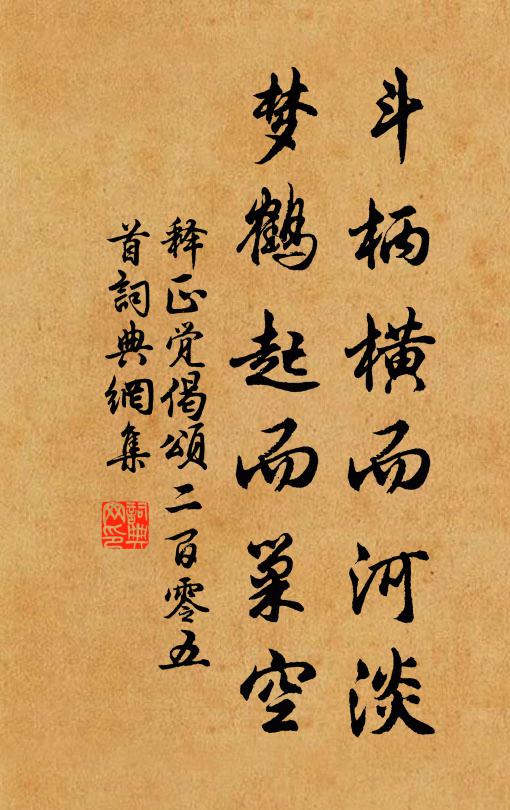 斗柄横而河淡
梦鹤起而巢空
释正觉偈頌二百零五
首詞典網集
詞典网印